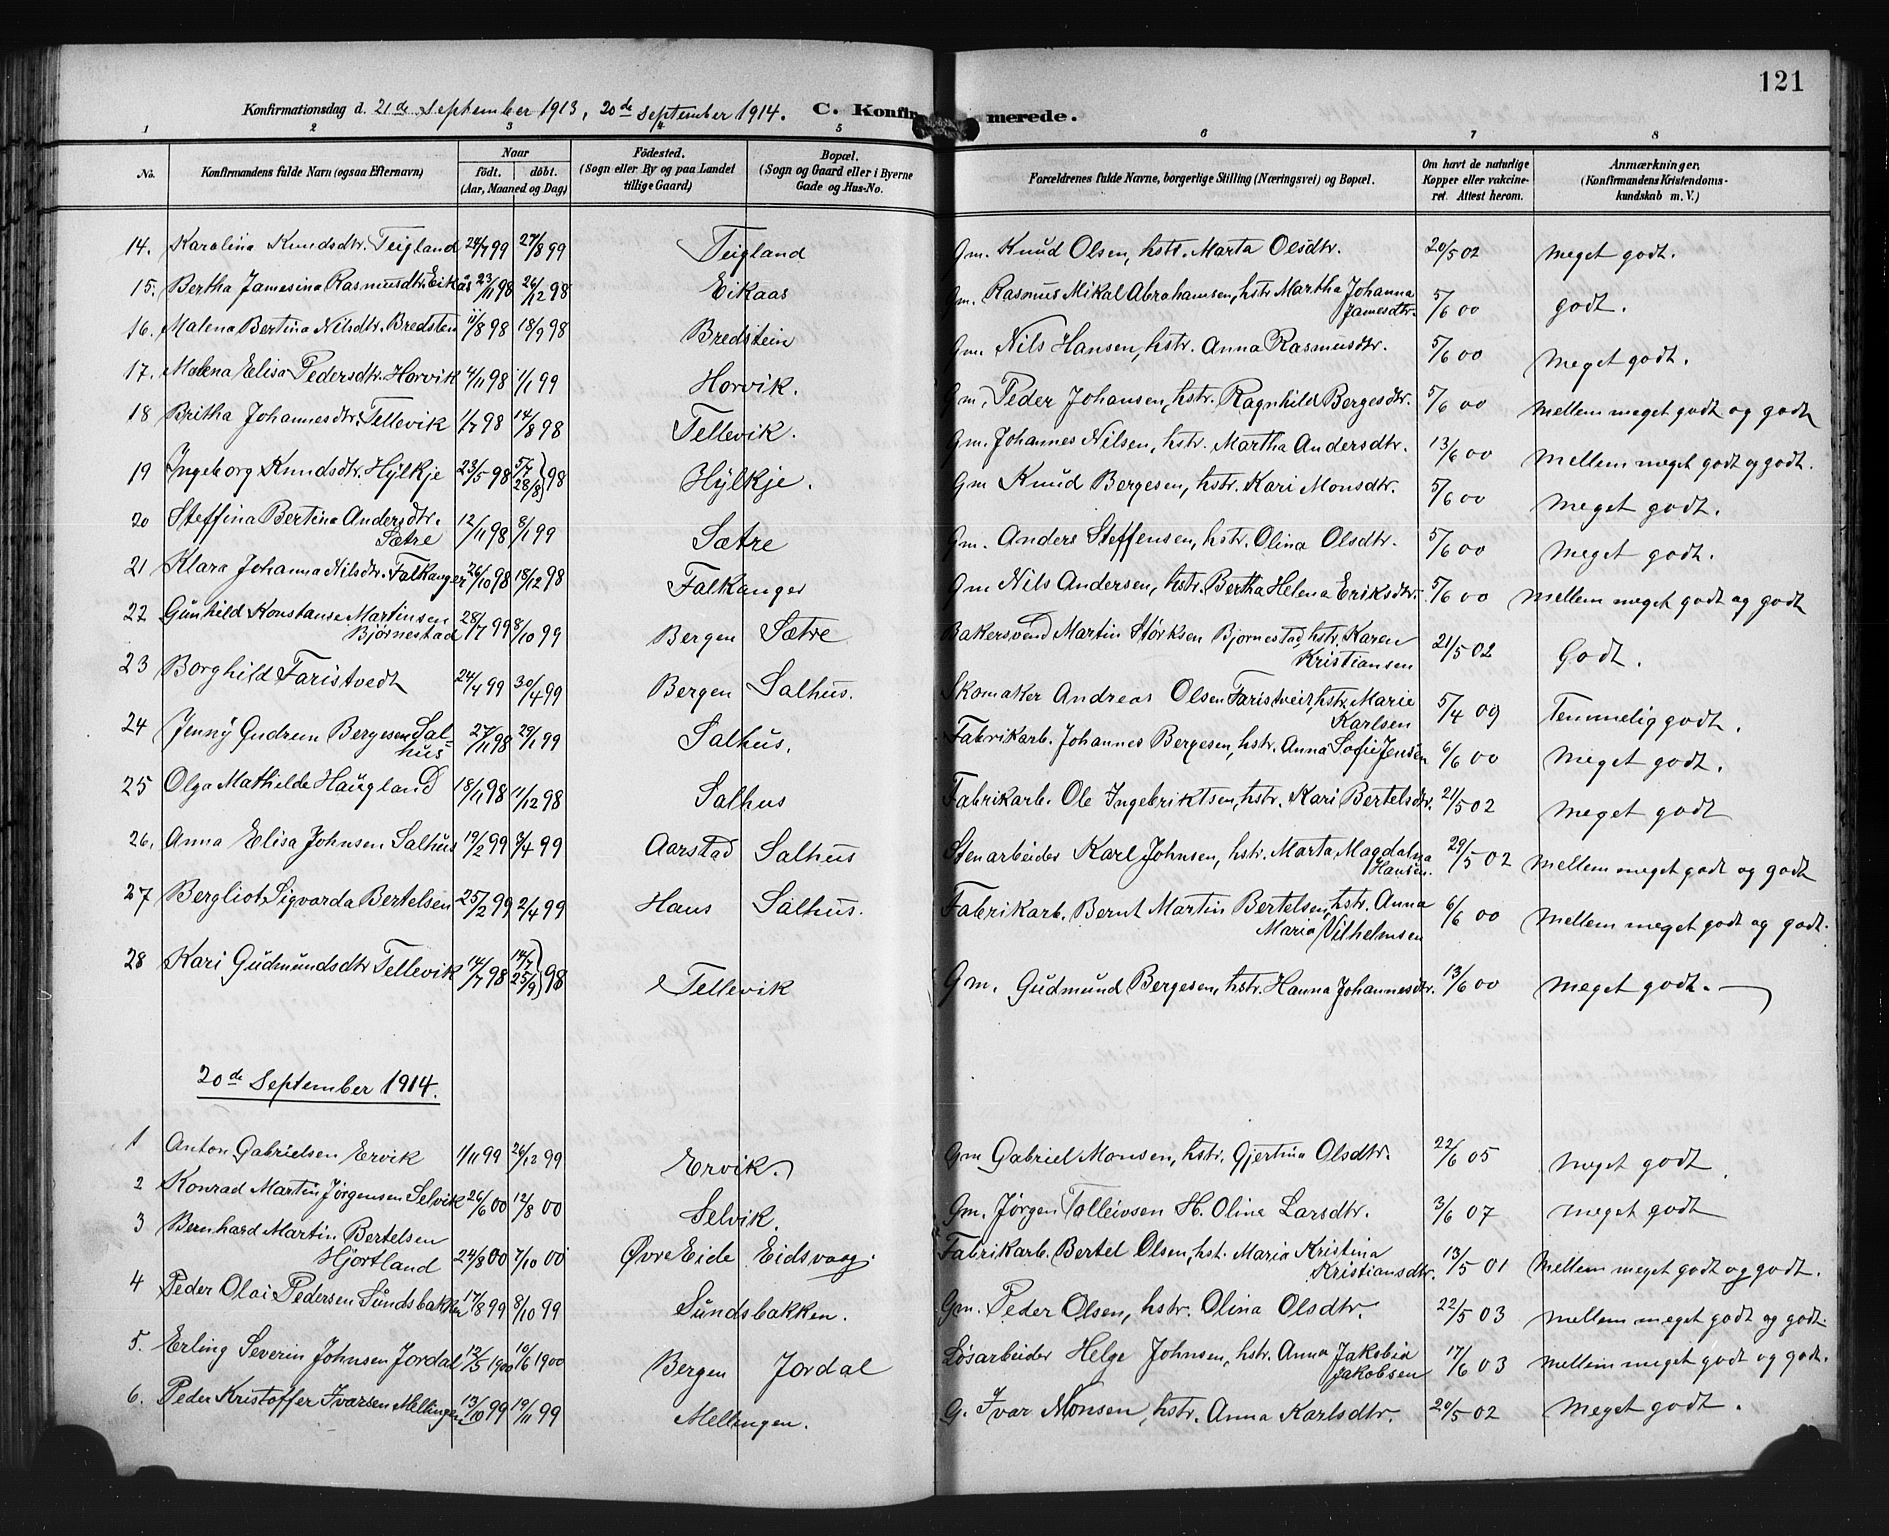 121
Konfirmationsdag d. 21de September 1913, 20de September 1914. C. Konfirmerede.
1 2 3 4 5 6 7 8
No. Konfirmandens fulde Navn (ogsaa Efternavn) Naar födt. döbt. (Aar, Maaned og Dag) Födested. (Sogn eller By og paa Landet tillige Gaard) Bopæl. (Sogn og Gaard eller i Byerne Gade og Hus-No. Forældrenes fulde Navne, borgerlige Stilling (Næringsvei) og Bopæl. Om havt de naturlige Kopper eller vakcineret. Attest herom. Anmærkninger. (Konfirmandens Kristendomskundskab m. V.)
14. Karolina Knudsdtr. Teigland 24/7 99 27/8 99 Teigland Gm. Knud Olsen, hstr. Marta Olsdtr. 20/5 02 Meget godt.
15. Bertha Jamesina Rasmusdtr. Eikås 23/11 98 26/12 98 Eikaas Gm. Rasmus Mikal Abrahamsen, hstr Martha Johanna Jamesdtr. 5/6 00 godt.
16. Malena Bertina Nilsdtr. Bredsten 11/8 98 18/9 98 Bredstein Gm. Nils Hansen, hstr. Anna Rasmusdtr. 5/6 00 Meget godt.
17. Malena Elisa Pedersdtr. Horvik 4/11 98 1/1 99 Horvik. Gm, Peder Johansen, hstr. Ragnhild Bergesdtr. 5/6 00 Mellem meget godt og godt
18 Britha Johannesdtr. Tellevik 1/7 98 14/8 98 Tellevik. Gm. Johannes Nilsen, hstr. Martha Andersdtr. 13/6 00 Mellem meget godt og godt.
19 Ingeborg Knudsdtr. Hylkje 23/5 98 5/7 28/8 98 Hylkje. Gm Knud Bergesen, hstr. Kari Monsdtr. 5/6 00 Meget godt.
20 Steffina Bertina Andersdtr. Sætre 12/11 98 8/1 99 Sætre Gm. Anders Steffensen, hstr. Olina Olsdtr. 5/6 00 Meget godt.
21 Klara Johanna Nilsdtr. Falkanger 26/10 98 18/12 98 Falkanger Gm Nils Andersen, hstr. Bertha Helena Eriksdtr. 5/6 00 Mellem meget godt og godt
22 Gunhild Konstanse Martinsen Bjørnestad 28/7 99 8/10 99 Bergen Sætre Bakersvend Martin Størksen Bjørnestad, hstr. Karen Kristiansen 21/5 02 Godt.
23 Borghild Faristvedt 24/4 99 30/4 99 Bergen Salhus. Skomaker Andreas Olsen Faristveit, hstr. Marie Karlsen 5/4 09 Temmelig godt.
24 Jenny Gudrun Bergesen Salhus 27/11 98 29/1 99 Salhus. Fabrikarb. Johannes Bergesen, hstr. Anna Sofie Jensen 6/6 00 Meget godt.
25 Olga Mathilde Haugland 18/11 98 11/12 98 Salhus Fabrikarb. Ole Ingebriktsen, hstr. Kari Bertelsdtr. 21/5 02 Meget godt
26. Anna Elisa Johnsen Salhus 19/2 99 3/4 99 Aarstad Salhus Stenarbeider Karl Johnsen, hstr. Marta Magdalna Hansen. 29/5 02 Mellem meget godt og godt
27 Bergliot Sigvarda Bertelsen 25/2 99 2/4 99 Haus Salhus. Fabrikarb. Bernt Martin Bertelsen, hstr. Anna Maria Vilhelmsen 6/6 00 Mellem meget godt og godt.
28 Kari Gudmundsdtr Tellevik 14/7 98 14/7 25/9 98 Tellevik Gm. Gudmund Bergesen, hstr. Hanna Johannesdtr. 13/6 00 Meget godt.
20de September 1914.
1 Anton Gabrielsen Ervik 1/11 99 26/12 99 Ervik. Gm. Gabriel Monsen, hstr. Gjertina Olsdtr. 22/6 05 Meget godt
2 Konrad Martin Jørgensen Selvik 26/6 00 12/8 00 Selvik. Gm. Jørgen Talleivsen H. Olina Larsdtr. 3/6 07 Meget godt
3 Bernhard Martin Bertelsen Hjortland 24/8 00 7/10 00 Øvre Eide Eidsvaag. Fabrikarb. Bertel Olsen, hst. Maria Kristina Kristiansdtr. 13/5 01 Mellem meget godt og godt.
4 Peder Olai Pedersen Sundsbakken 17/8 99 8/10 99 Sundsbakken. Gm. Peder Olsen, hstr. Olina Olsdtr. 22/5 03 Mellem meget godt og godt.
5. Erling Severin Johnsen Jordal 12/5 1900 10/6 1900 Bergen Jordal Løsarbeider Helge Johnsen, hstr. Anna Jakobia Jakobsen 17/6 03 Mellem meget godt og godt.
6. Peder Kristoffer Ivarsen Mellingen 13/10 99 19/11 99 Mellingen. G. Ivar Monsen, hstr. Anna Karlsdtr. 20/5 02 Meget godt.